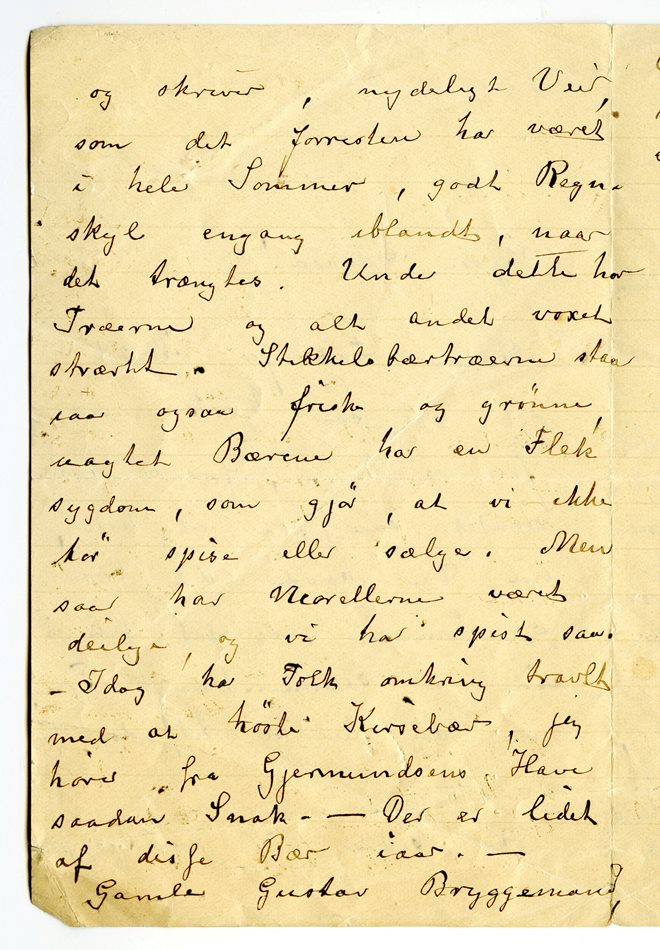 og skriver, nydeligt Veir,
som det forresten har været
i hele Sommer, godt Regn-
skyl engang iblandt, naar
det trængtes. Under dette har
Træerne og alt andet voxet
stærkt. Stikkelsbærtræerne staa
iaar ogsaa friske og grønne,
uagtet Bærene har en Flek
sygdom, som gjør, at vi ikke
bør spise eller sælge. Men
saa har Morellerne været
deilige, og vi har spist saa.
– Idag har Folk omkring travlt
med at høste Kirsebær, jeg
hører fra Gjermundsens Have
saadan Snak. – Der er lidet
af disse Bær iaar. –
Gamle Gustav Bryggemand,